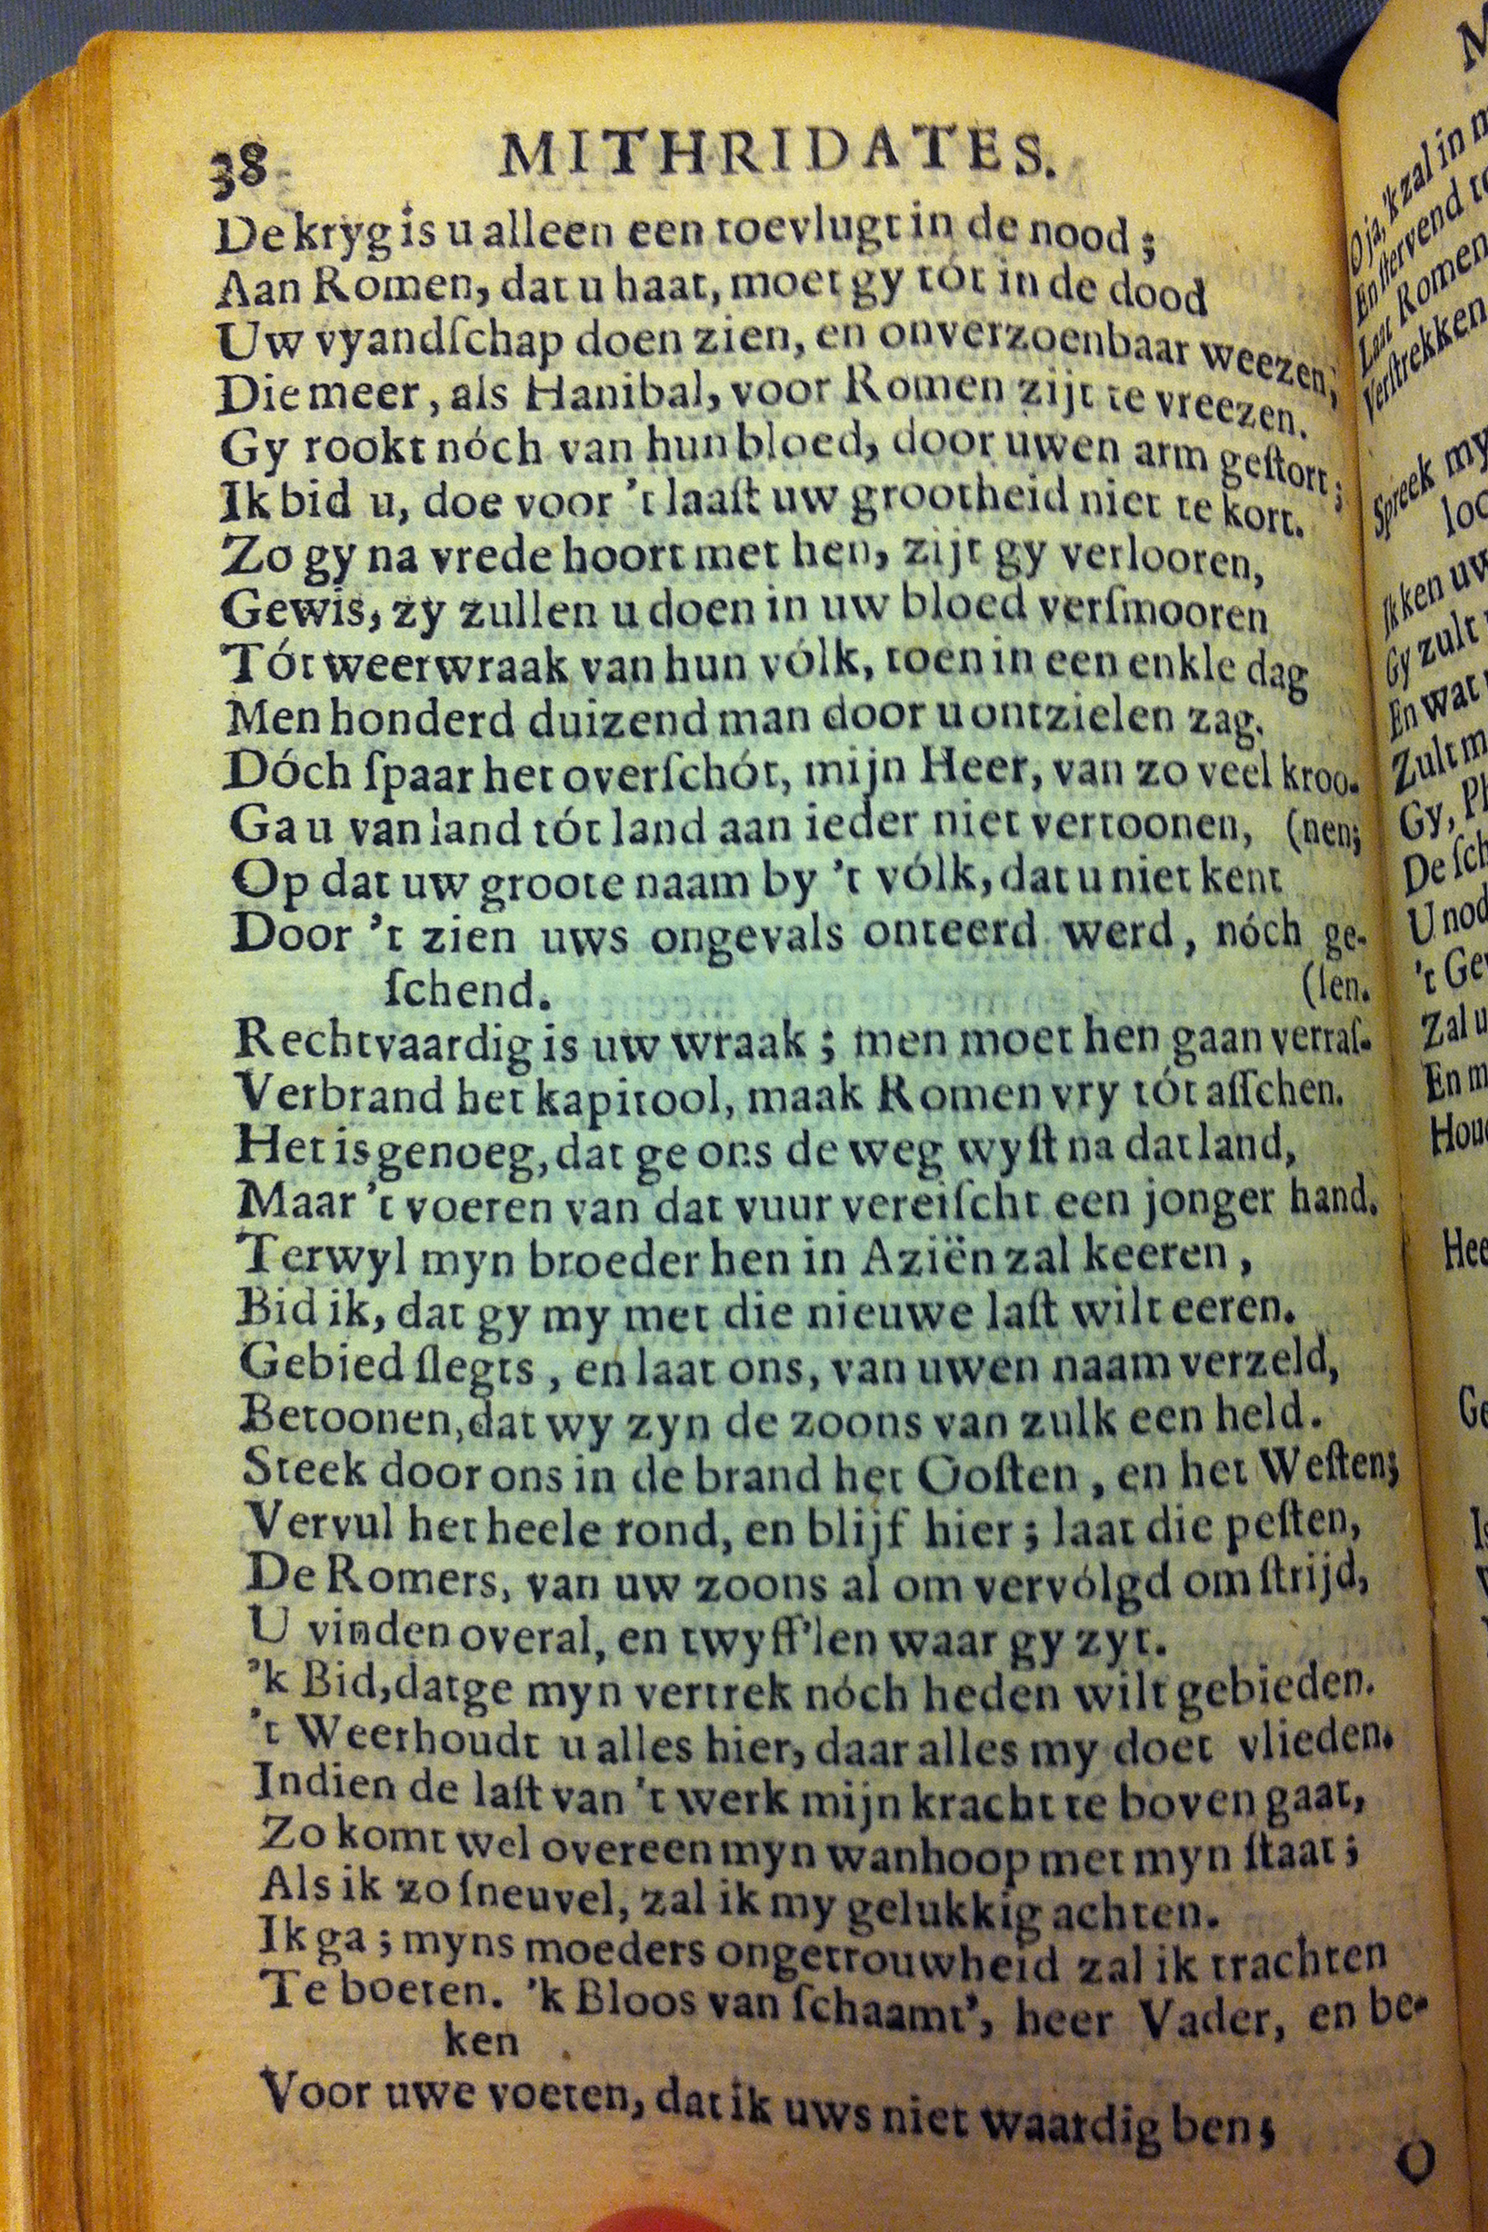 38 MITHRIDATES.
De kryg is u alleen een toevlugt in de nood;
Aan Romen, dat u haat, moet gy tót in de dood
Uw vyandſchap doen zien, en onverzoenbaar weezen,
Die meer, als Hanibal, voor Romen zijt te vreezen.
Gy rookt nóch van hun bloed, door uwen arm geſtort;
Ik bid u, doe voor 't laaſt uw grootheid niet te kort.
Zo gy na vrede hoort met hen, zijt gy verlooren,
Gewis, zy zullen u doen in uw bloed verſmooren
Tót weerwraak van hun vólk, toen in een enkle dag
Men honderd duizend man door u ontzielen zag.
Dóch ſpaar het overſchót, mijn Heer, van zo veel kroo-
Ga u van land tót land aan ieder niet vertoonen, (nen;
Op dat uw groote naam by 't vólk, dat u niet kent
Door 't zien uws ongevals onteerd werd, nóch ge-
ſchend. (ſen.
Rechtvaardig is uw wraak; men moet hen gaan verraſ-
Verbrand het kapitool, maak Romen vry tót aſſchen.
Het is genoeg, dat ge ons de weg wyſt na dat land,
Maar 't voeren van dat vuur vereiſcht een jonger hand.
Terwyl myn broeder hen in Aziën zal keeren,
Bid ik, dat gy my met die nieuwe laſt wilt eeren.
Gebied ſlegts, en laat ons, van uwen naam verzeld,
Betoonen, dat wy zyn de zoons van zulk een held.
Steek door ons in de brand het Ooſten, en het Weſten;
Vervul het heele rond, en blijf hier; laat die peſten,
De Romers, van uw zoons al om vervólgd om ſtrijd,
U vinden overal, en twyff'len waar gy zyt.
'k Bid, dat ge myn vertrek nóch heden wilt gebieden.
't Weerhoudt u alles hier, daar alles my doet vlieden.
Indien de laſt van 't werk mijn kracht te boven gaat,
Zo komt wel overeen myn wanhoop met myn ſtaat;
Als ik zo ſneuvel, zal ik my gelukkig achten.
Ik ga; myns moeders ongetrouwheid zal ik trachten
Te boeten. 'k Bloos van ſchaamt', heer Vader, en be-
ken
Voor uwe voeten, dat ik uws niet waardig ben;
O
O ja, 'k zal in
En ſtervend
Laat Romen
Verſtrekken
Spreek my
Ik ken
Gy zult
En wat
Zult
Gy,
U
't
Zal
En